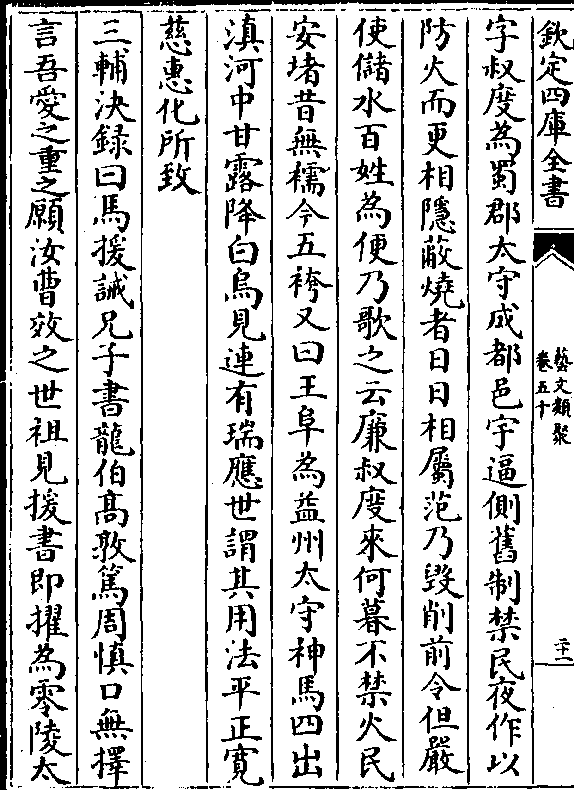 欽定四庫全書
藝文類聚
卷五十
二十一
字叔度為蜀郡太守成都邑宇逼側舊制禁民夜作以
防火而更相隱蔽燒者日日相屬范乃毀削前令但嚴
使儲水百姓為便乃歌之云廉叔度來何暮不禁火民
安堵昔無襦今五袴又曰王阜為益州太守神馬四出
滇河中甘露降白烏見連有瑞應世謂其用法平正寛
慈惠化所致
三輔決録曰馬援誡兄子書龍伯髙敦篤周慎口無擇
言吾愛之重之願汝曹效之世祖見援書即擢為零陵太